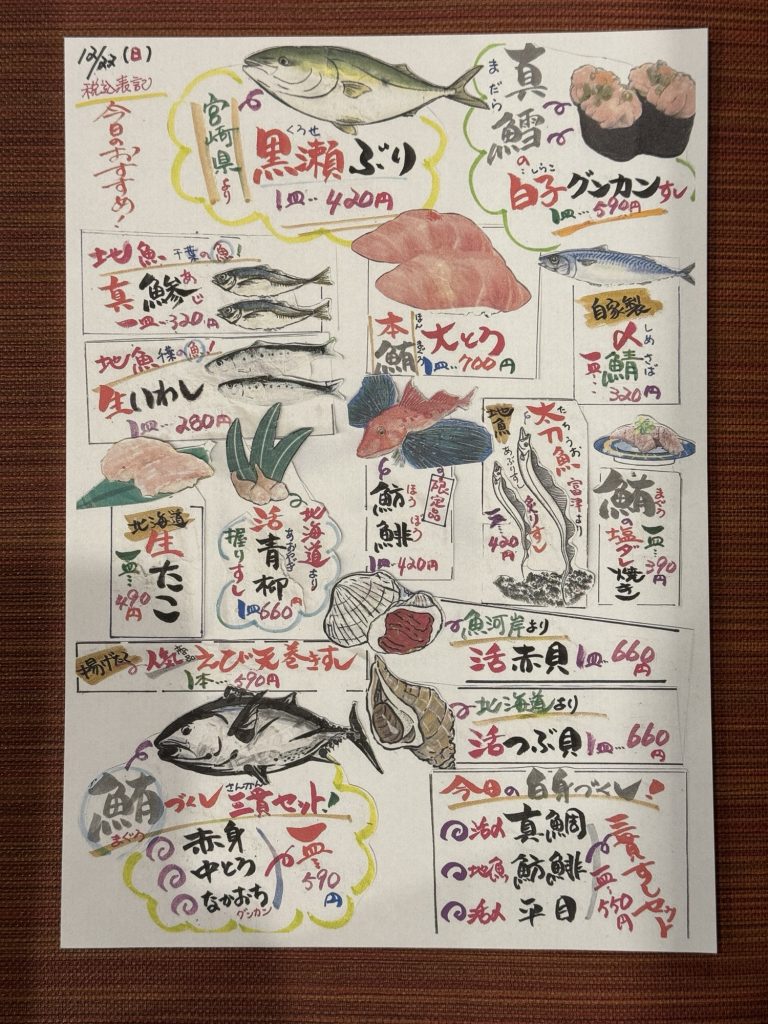 12/22(日)
税込表記
今日のおすすめ！
宮崎県より
くろせ
黒瀬ぶり
1皿…420円
まだら
真鱈の
しらこ
白子グンカンすし
1皿…590円
地魚 千葉の魚！
あじ
真鯵
一皿…320円
地魚 千葉の魚！
生いわし
1皿…280円
ほんまぐろ
本鮪大とろ
1皿…700円
自家製
しめさば
〆鯖
一皿…
320円
北海道
生たこ
一皿…490円
北海道より
あおやぎ
活青柳
握りすし
1皿660円
限定品
ほうぼう
魴鮄
1皿…420円
地魚
たちうお
太刀魚
富津より
あぶりすし
炙りすし
一皿…420円
まぐろ
鮪の塩ダレ焼き
一皿…390円
魚河岸より
活赤貝 1皿…660円
揚げたて 人気商品 えび天巻きすし
1本…590円
北海道より
活つぶ貝 1皿…660円
鮪づくし三貫セット！
まぐろ
さんかん
赤身
中とろ
なかおち
グンカン
一皿…590円
今日の白身づくし！
活〆 真鯛
地魚 魴鮄
活〆 平目
三貫すしセット
一皿…550円